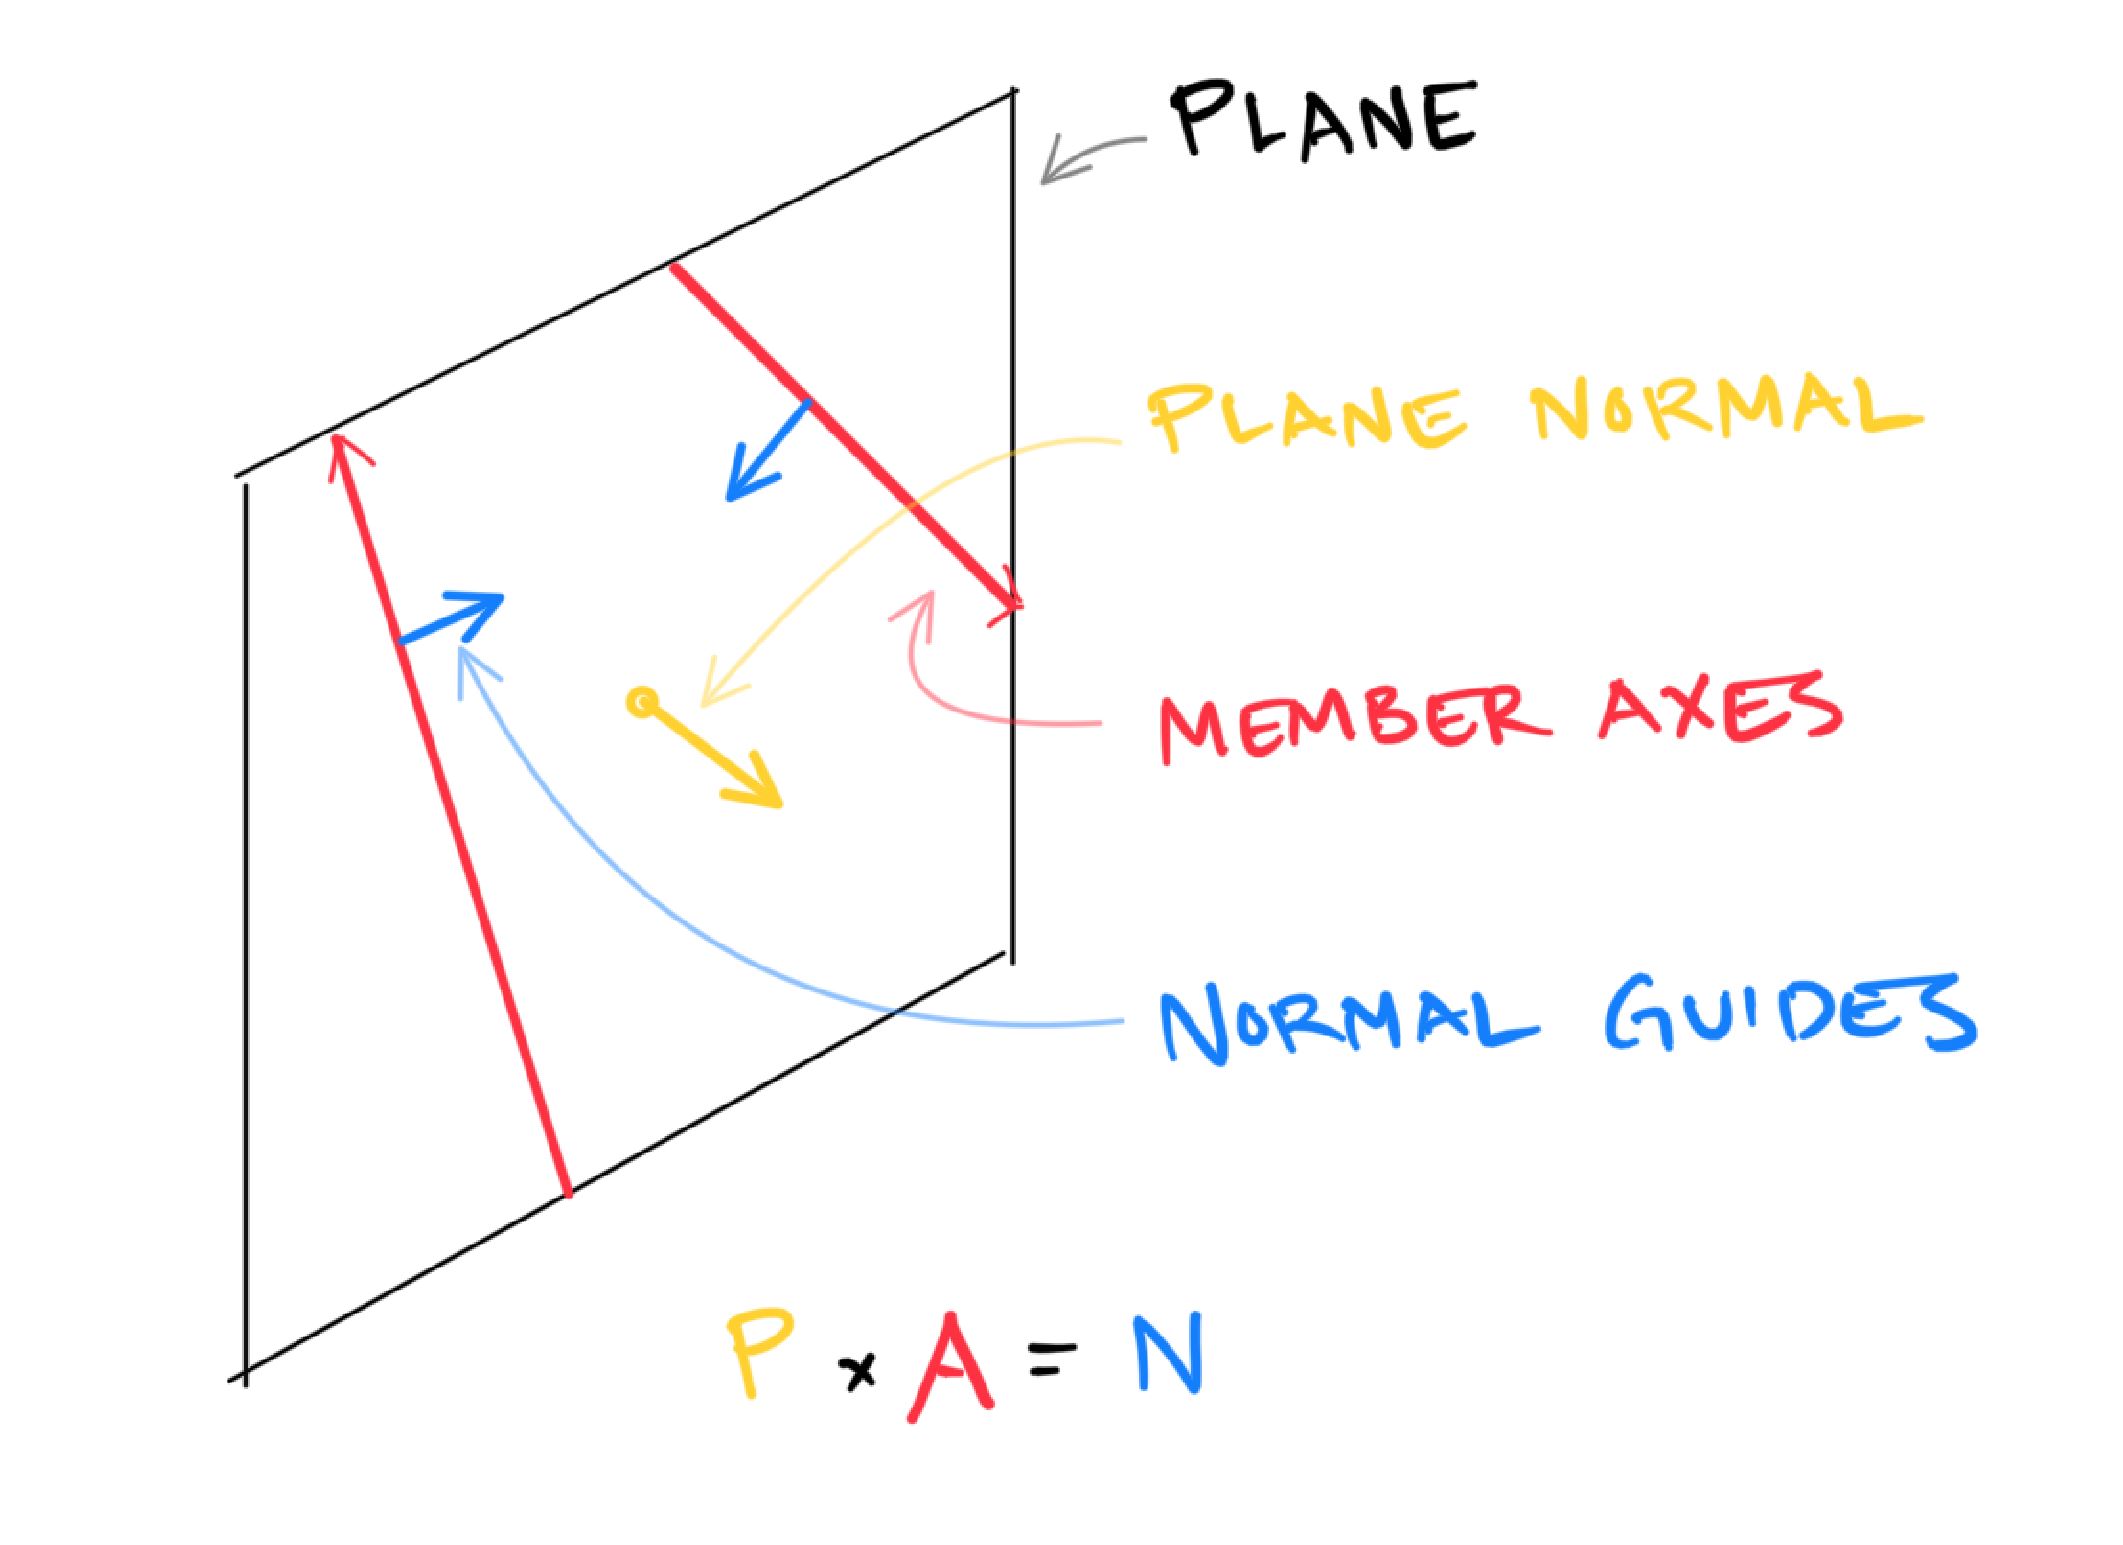 PLANE
PLANE NORMAL
MEMBER AXES
NORMAL GUIDES
P × A = N